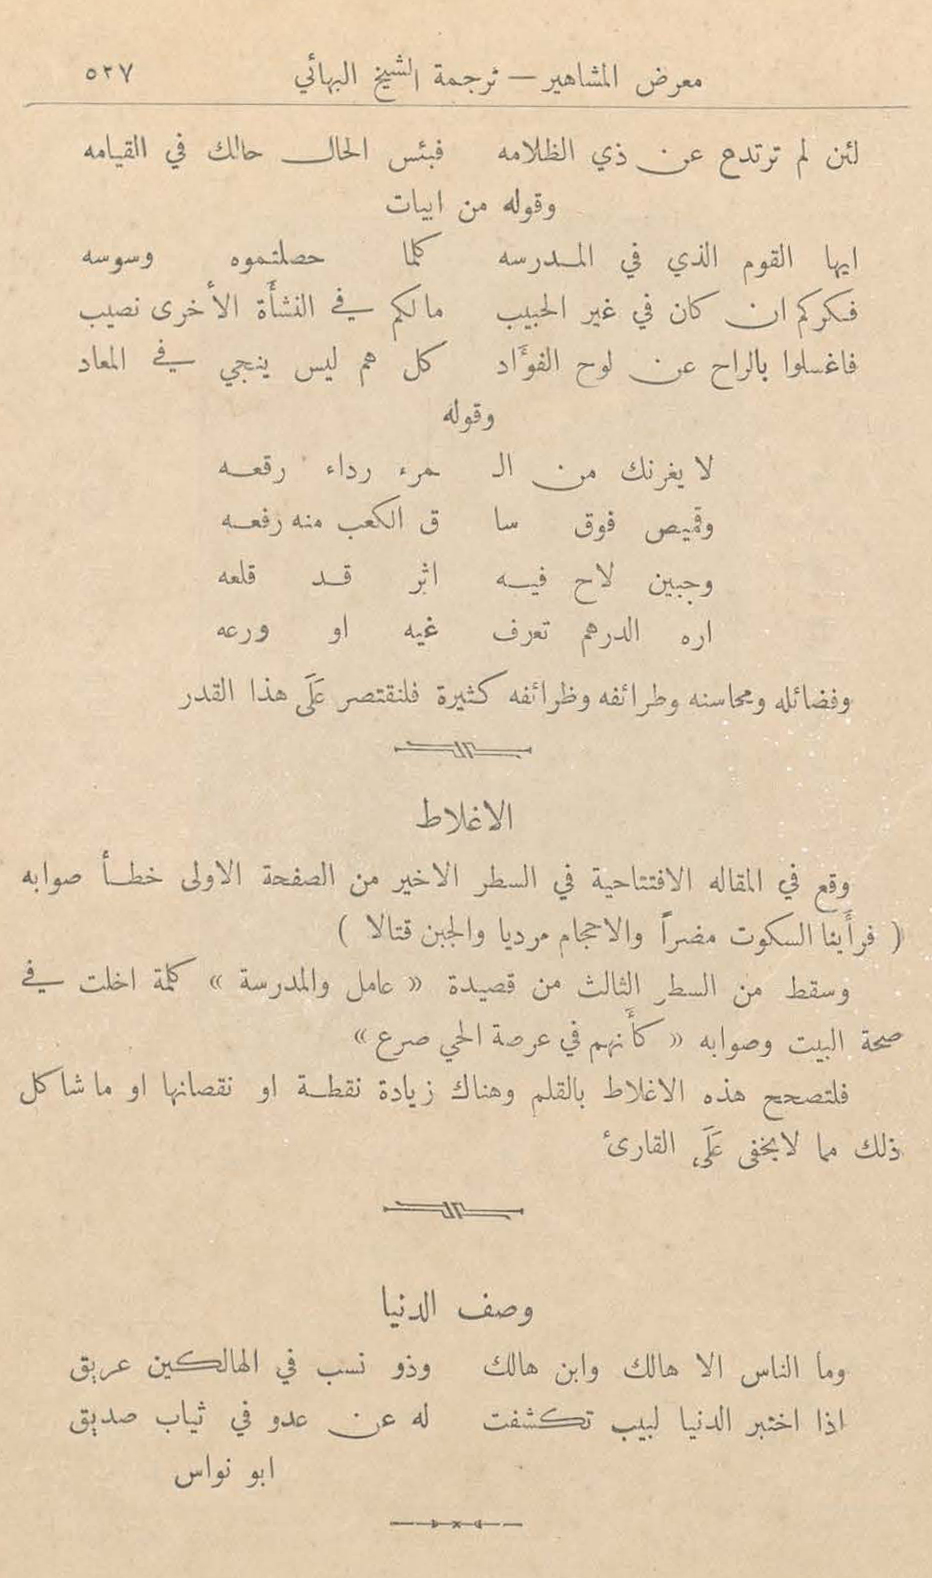 معرض المشاهير — ترجمة الشيخ البهائي ٥٢٧
لئن لم ترتدع عن ذي الظلامه فبئس الحال حالك في القيامه
وقوله من ابيات
ايها القوم الذي في المدرسه كلما حصلتموه وسوسه
فكركم ان كان في غير الحبيب مالكم في النشأة الأخرى نصيب
فاغسلوا بالراح عن لوح الفؤاد كل هم ليس ينجي في المعاد
وقوله
لا يغرنك من الـ ـمرء رداء رقعه
وقميص فوق سا ق الكعب منه رفعه
وجبين لاح فيه اثر قد قلعه
اره الدرهم تعرف غيه او ورعه
وفضائله ومحاسنه وطرائفه وظرائفه كثيرة فلنقتصر عَلَى هذا القدر
الاغلاط
وقع في المقاله الافتتاحية في السطر الاخير من الصفحة الاولى خطأ صوابه
( فرأينا السكوت مضراً والاحجام مرديا والجبن قتالا )
وسقط من السطر الثالث من قصيدة « عامل والمدرسة » كلمة اخلت في
صحة البيت وصوابه « كأنهم في عرصة الحي صرع »
فلتصحح هذه الاغلاط بالقلم وهناك زيادة نقطة او نقصانها او ما شاكل
ذلك مما لا يخفى عَلَى القارئ
وصف الدنيا
وما الناس الا هالك وابن هالك وذو نسب في الهالكين عريق
اذا اختبر الدنيا لبيب تكشفت له عن عدو في ثياب صديق
ابو نواس